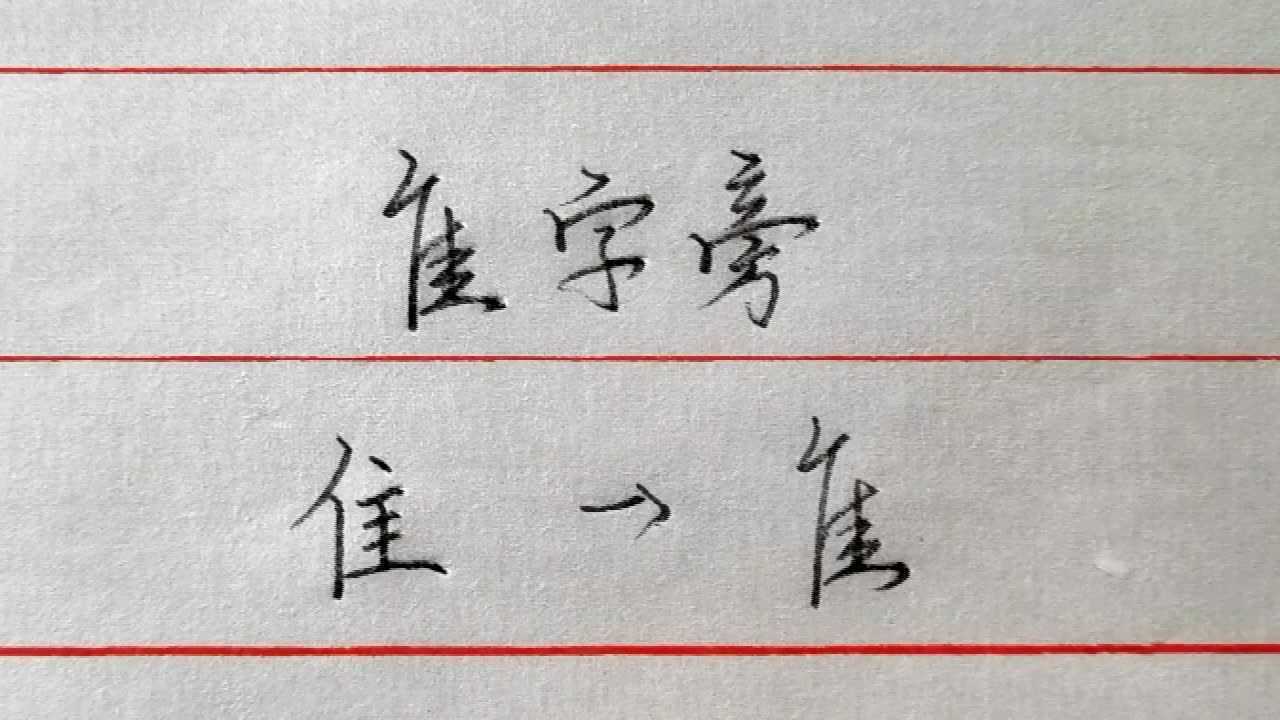 隹字旁
隹 → 隹